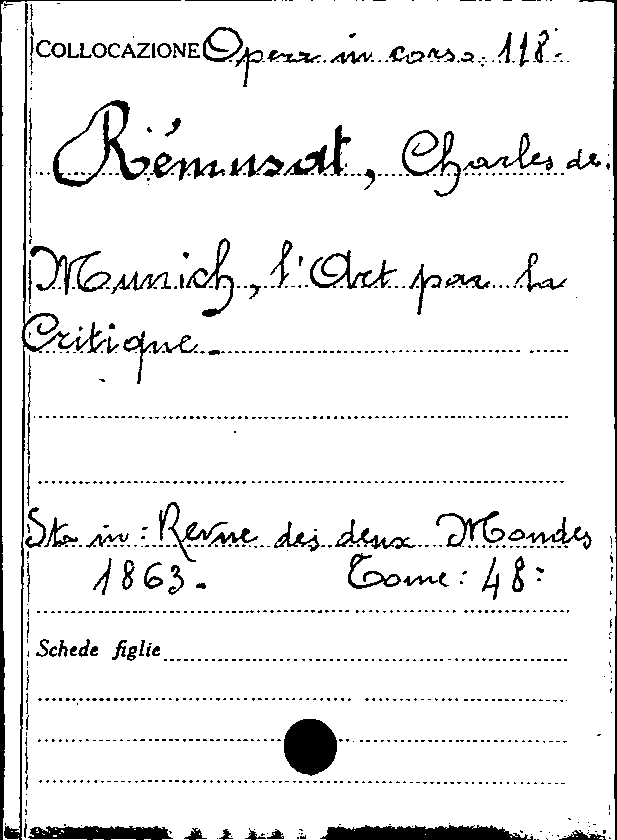 COLLOCAZIONE Opere in corso. 118.
Rémusat, Charles de.
Munich, l'Art par la
Critique.
Sta in: Revue des deux Mondes
1863. Tome: 48:
Schede figlie